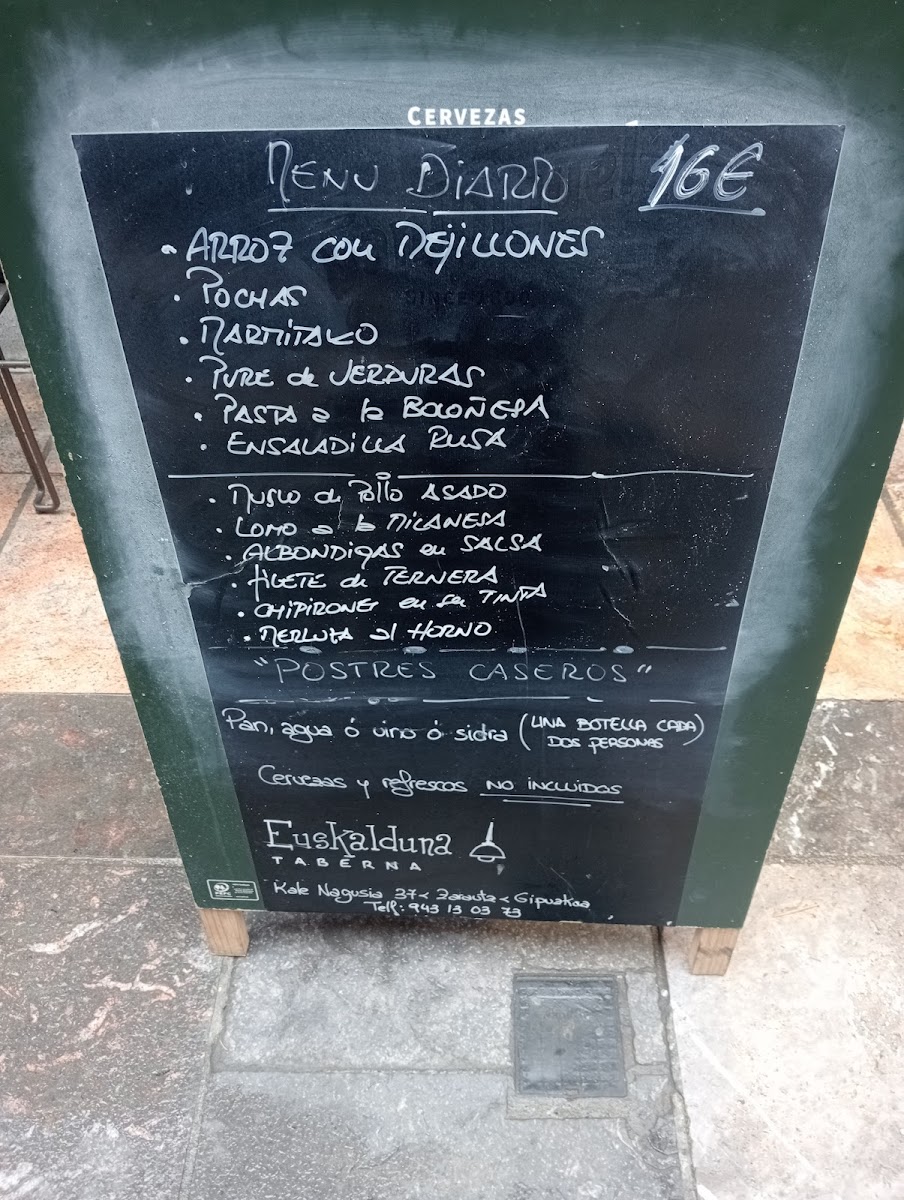 CERVEZAS
MENU DIARIO 16€
• ARROZ con MEJILLONES
• POCHAS
• MARMITAKO
• PURE de VERDURAS
• PASTA a la BOLOÑESA
• ENSALADILLA RUSA
• MUSLO de POllO ASADO
• LOMO a la MILANESA
• ALBONDIGAS en SALSA
• FILETE de TERNERA
• CHIPIRONES en su TINTA
• MERLUZA al HORNO
"POSTRES CASEROS"
Pan, agua ó vino ó sidra (UNA BOTELLA CADA
DOS PERSONAS)
Cervezas y refrescos NO INCLUIDOS
Euskalduna
TABERNA
Kale Nagusia 37 < Zarautz < Gipuzkoa
Telf: 943 13 03 73